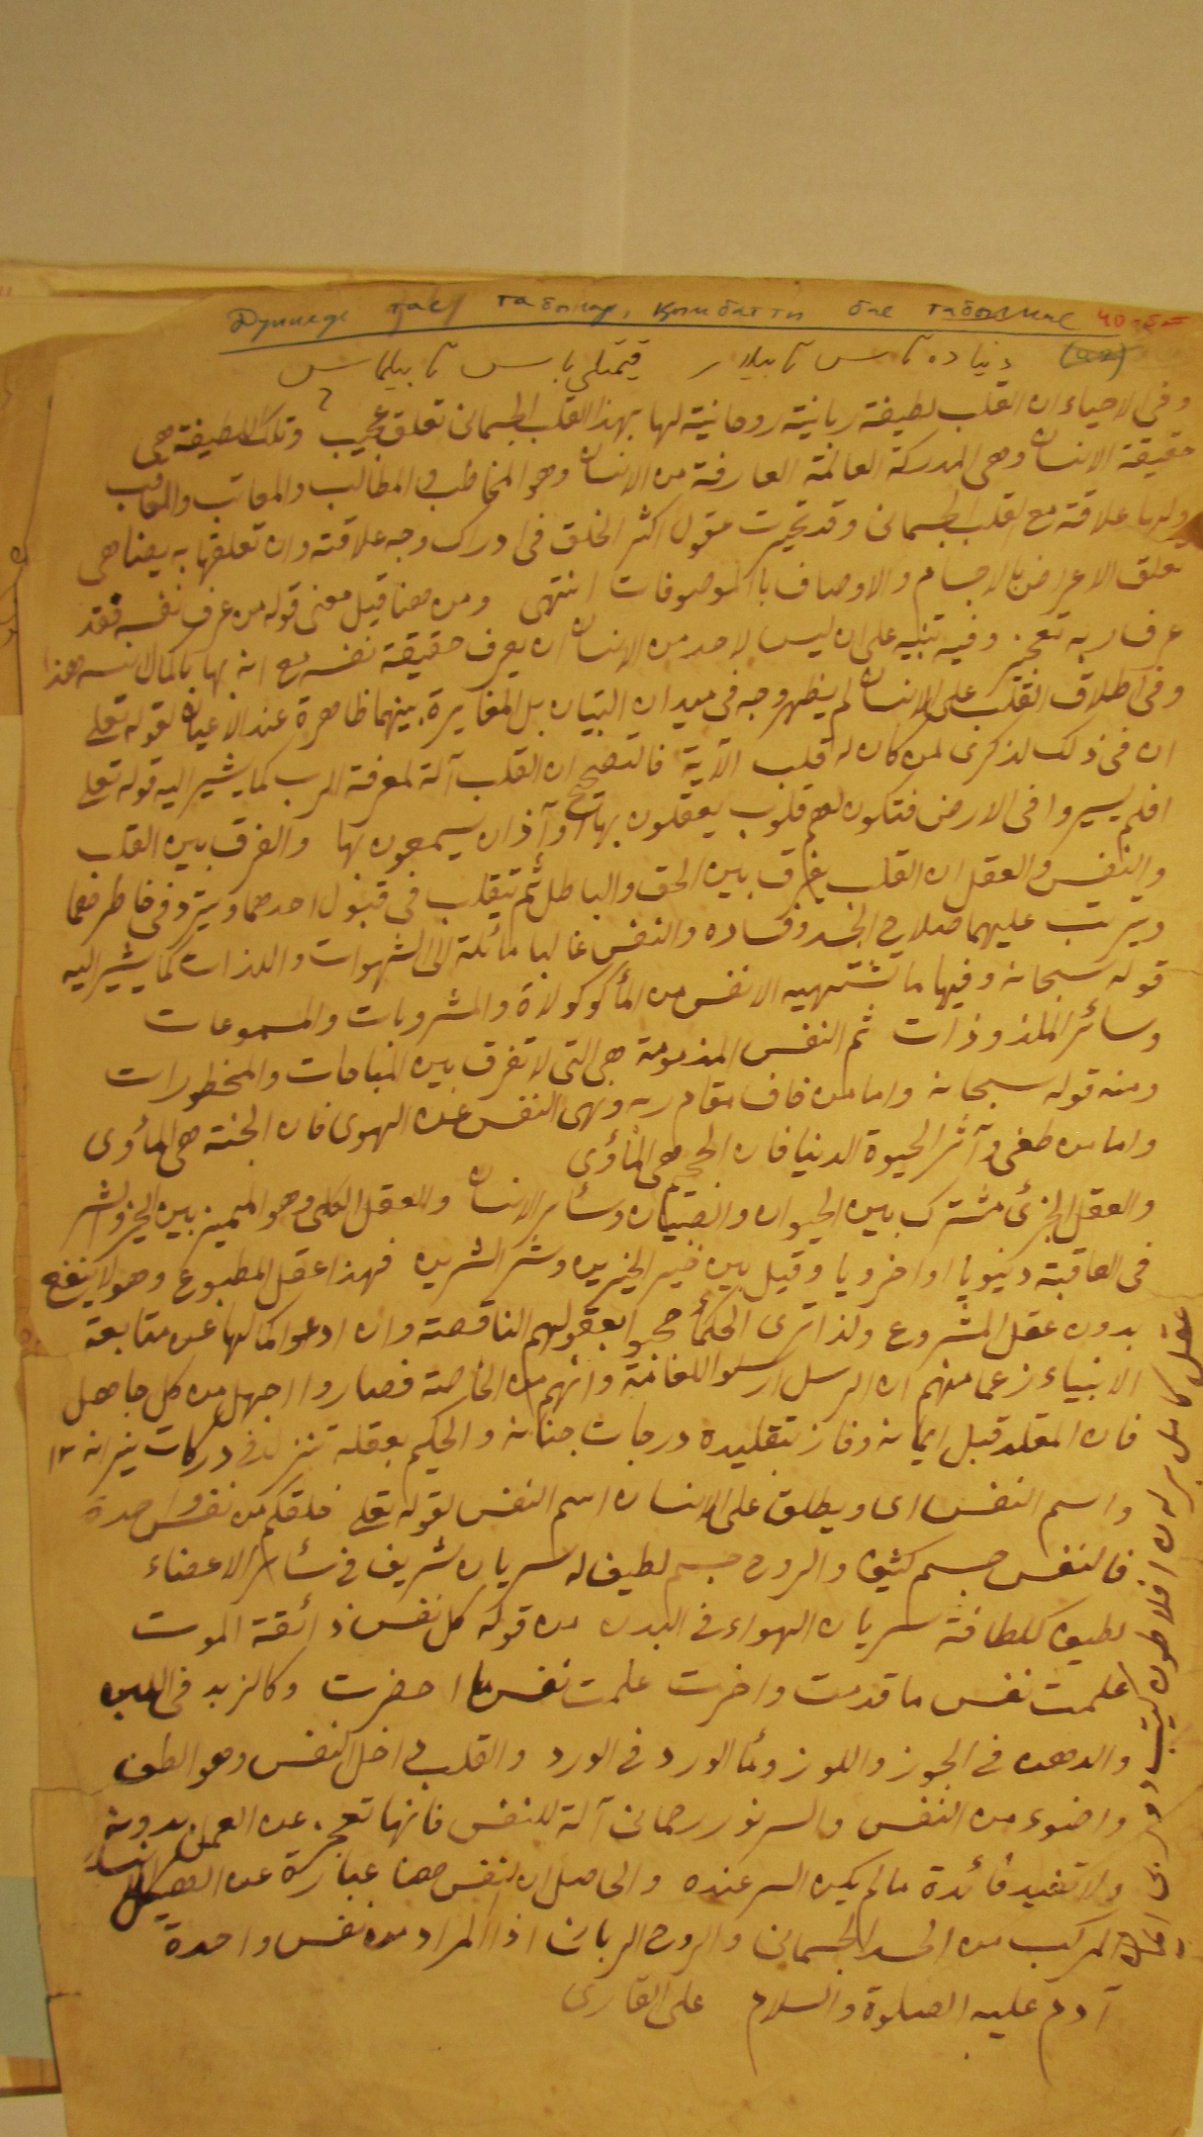 Дүниеде тас табылар, қымбатты бас табылмас 40-бет
دنیاده تاس تابیلار قیمتلی باس تابیلماس
وفی الاحیاء ان القلب لطیفة ربانیة روحانیة لها بهذا القلب الجسمانی تعلق عجیب وتلک اللطیفة هی
حقیقة الانسان وهی المدرکة العالمة العارفة من الانسان وهو المخاطب والمطالب والمعاتب والمعاقب
ولها علاقة مع القلب الجسمانی وقد تحیرت عقول اکثر الخلق فی ادراک وجه علاقته وان تعلقها به یضاهی
تعلق الاعراض بالاجسام والاوصاف بالموصوفات انتهی ومن هنا قیل معنی قوله من عرف نفسه فقد
عرف ربه تعجیز وفیه تنبیه علی ان لیس لاحد من الانسان ان یعرف حقیقة نفسه مع انه بها بالکمال انسه هذا
وفی اطلاق القلب علی الانسان لم یظهر وجه فی میدان التبیان بل المغایرة بینهما ظاهرة عند الاعیان لقوله تعلی
ان فی ذلک لذکری لمن کان له قلب الآیة فالتصحیح ان القلب آلة لمعرفة الرب کما یشیر الیه قوله تعلی
افلم یسیروا فی الارض فتکون لهم قلوب یعقلون بها او آذان یسمعون بها والفرق بین القلب
والنفس والعقل ان القلب یفرق بین الحق والباطل ثم یتقلب فی قبول احدهما ویتردد فی خاطرهما
ویترتب علیهما صلاح الجسد وفساده والنفس غالبا مائلة الی الشهوات واللذات کما یشیر الیه
قوله سبحانه وفیها ما تشتهیه الانفس من المأکولات والمشروبات والمسموعات
وسائر الملذوذات ثم النفس المذمومة هی التی لا تفرق بین المباحات والمحظورات
ومنه قوله سبحانه واما من خاف مقام ربه ونهی النفس عن الهوی فان الجنة هی المأوی
واما من طغی وآثر الحیوة الدنیا فان الجحیم هی المأوی
والعقل الجزئی مشترک بین الحیوان والصبیان وسائر الانسان والعقل الکلی وهو الممیز بین الخیر والشر
فی العاقبة دنیویا او اخرویا وقیل بین خیر الخیرین وشر الشرین فهذا عقل المطبوع وهو لا ینفع
بدون عقل المشروع ولذا تری الحکماء حجبوا بعقولهم الناقصة وان ادعوا کمالها عن متابعة
الانبیاء زعما منهم ان الرسل ارسلوا للعامة وانهم من الخاصة فصاروا اجهل من کل جاهل
فان المقلد قبل ایمانه وفاز بتقلیده درجات جنانه والحکیم بعقله تنزل فی درکات نیرانه ١٢
واسم النفس ای ویطلق علی الانسان اسم النفس لقوله تعلی خلقکم من نفس واحدة
فالنفس جسم کثیف والروح جسم لطیف له سریان شریف فی سائر الاعضاء
لطیف کلطافة سریان الهواء فی البدن من قوله کل نفس ذائقة الموت
علمت نفس ما قدمت واخرت علمت نفس ما احضرت وکالزبد فی اللبن
والدهن فی الجوز واللوز وماء الورد فی الورد والقلب داخل النفس وهو الطف
واضوء من النفس والسر نور رحمانی آلة للنفس فانها تعجز عن العمل بدونه
ولا تفید فائدة ما لم یکن السر عنده والحاصل ان النفس هنا عبارة عن الهیکل الانسانی
المرکب من الجسد الجسمانی والروح الربانی اذ المراد من نفس واحدة
آدم علیه الصلوة والسلام علی القاری